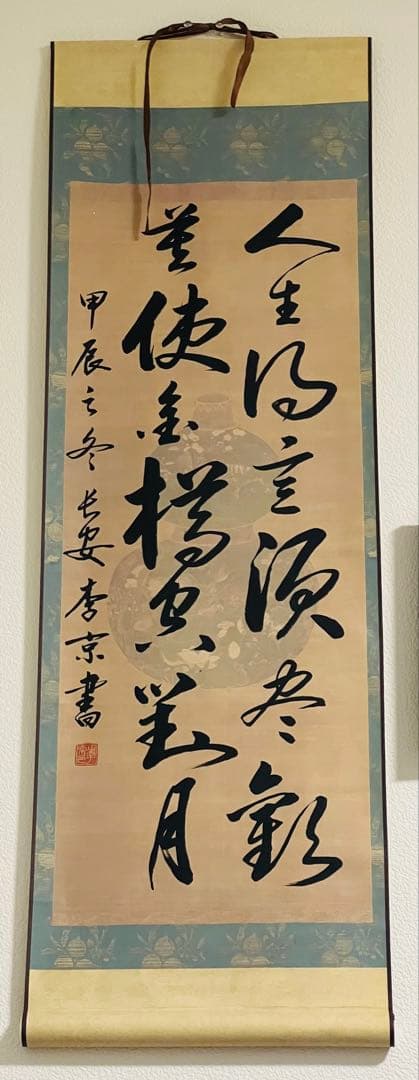 人生得意须尽歡
莫使金樽空對月
甲辰之冬长安李京書